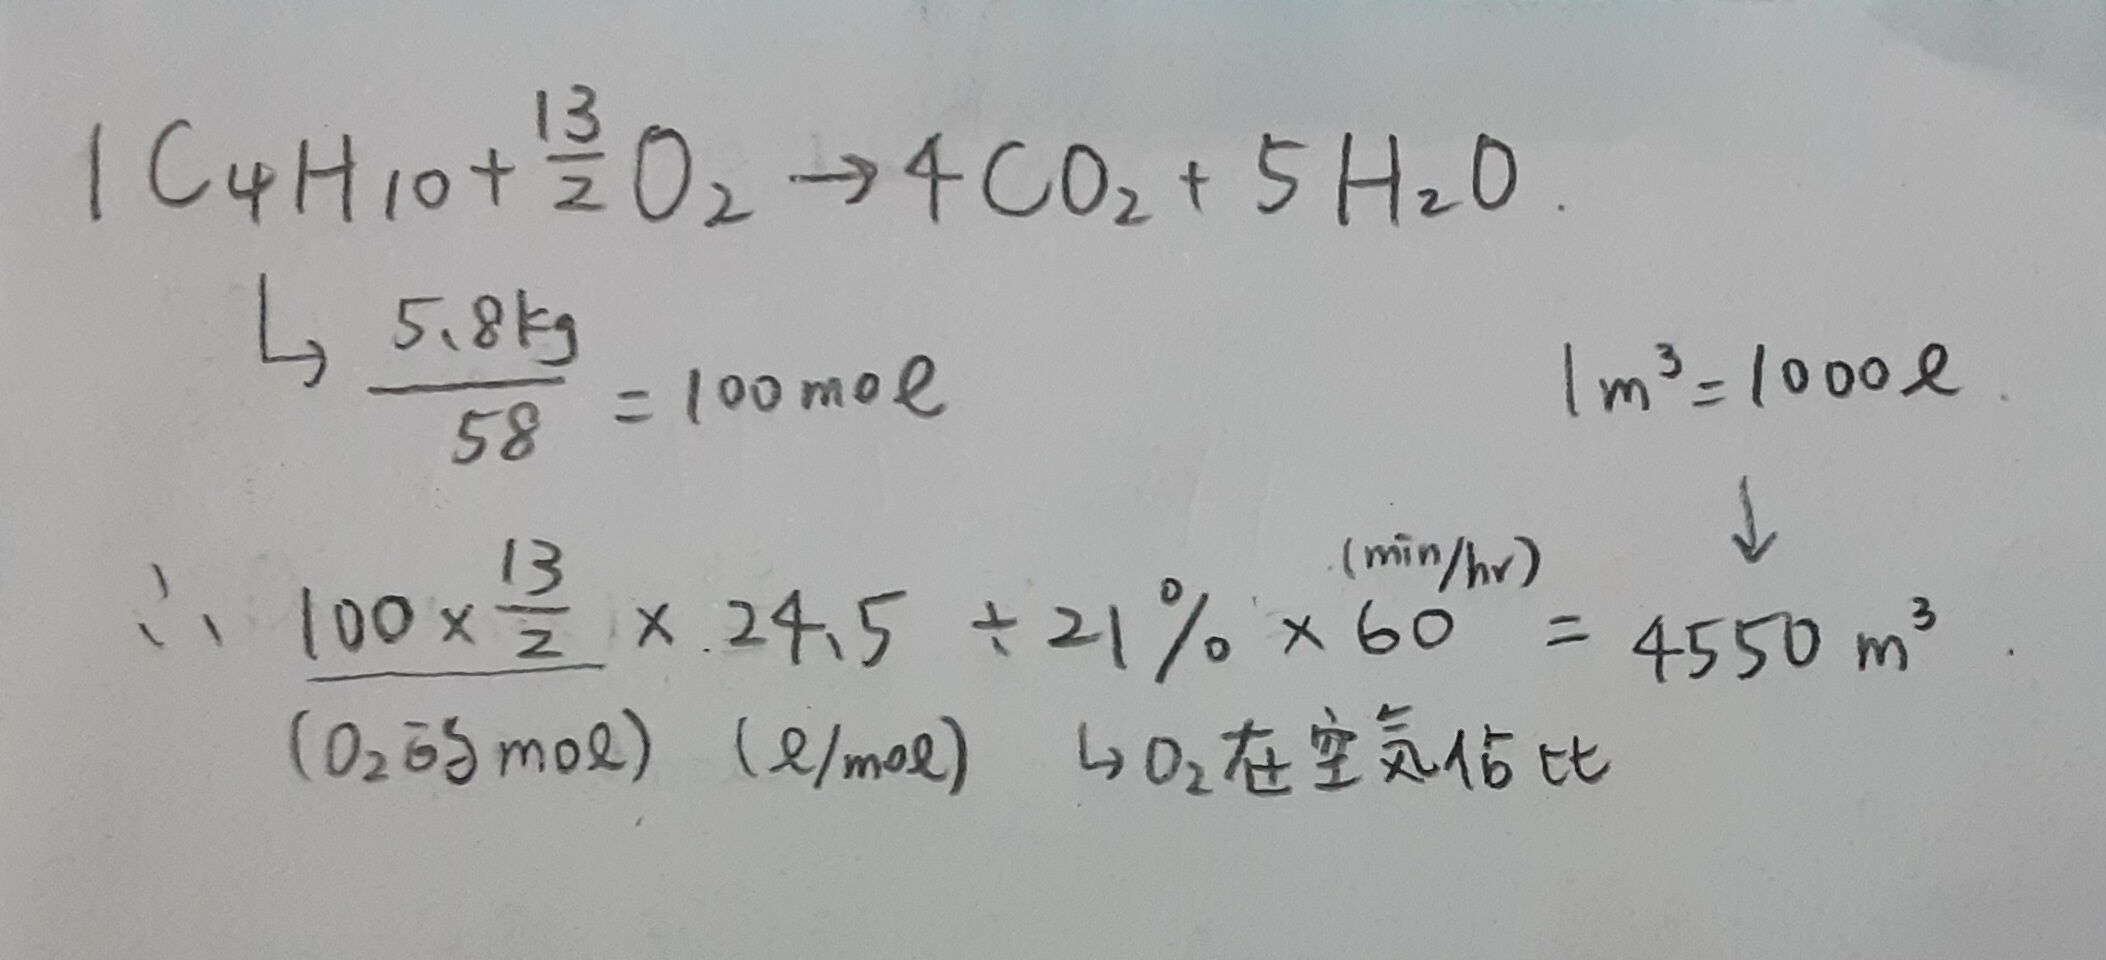 1C₄H₁₀ + 13/2 O₂ → 4CO₂ + 5H₂O.
↳ 5.8kg/58 = 100mol
1m³ = 1000l.
↓
∴ 100 × 13/2 × 24.5 ÷ 21% × 60 (min/hr) = 4550 m³.
(O₂的mol) (l/mol) ↳ O₂在空気佔比